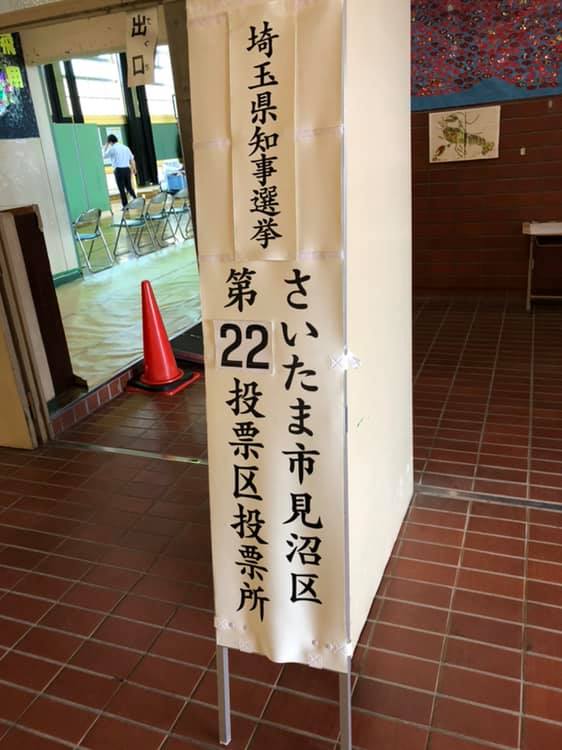 出口
でぐち
埼玉県知事選挙
さいたま市見沼区
第22投票区投票所